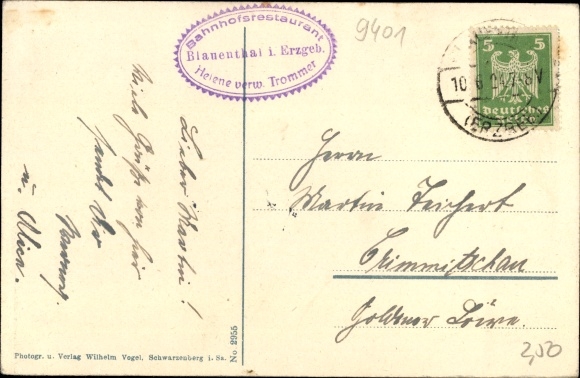 Bahnhofsrestaurant
Blauenthal i. Erzgeb.
Helene verw. Trommer
9401
5 5
Deutsches
Reich
10 6
(ERZGEB
Lieber Martin!
Viele Grüße von hier
sendet Dir
u. Alice.
Herrn
Martin Teichert
Crimmitschau
Goldener Löwe.
2,50
Photogr. u. Verlag Wilhelm Vogel, Schwarzenberg i. Sa.
No 2955